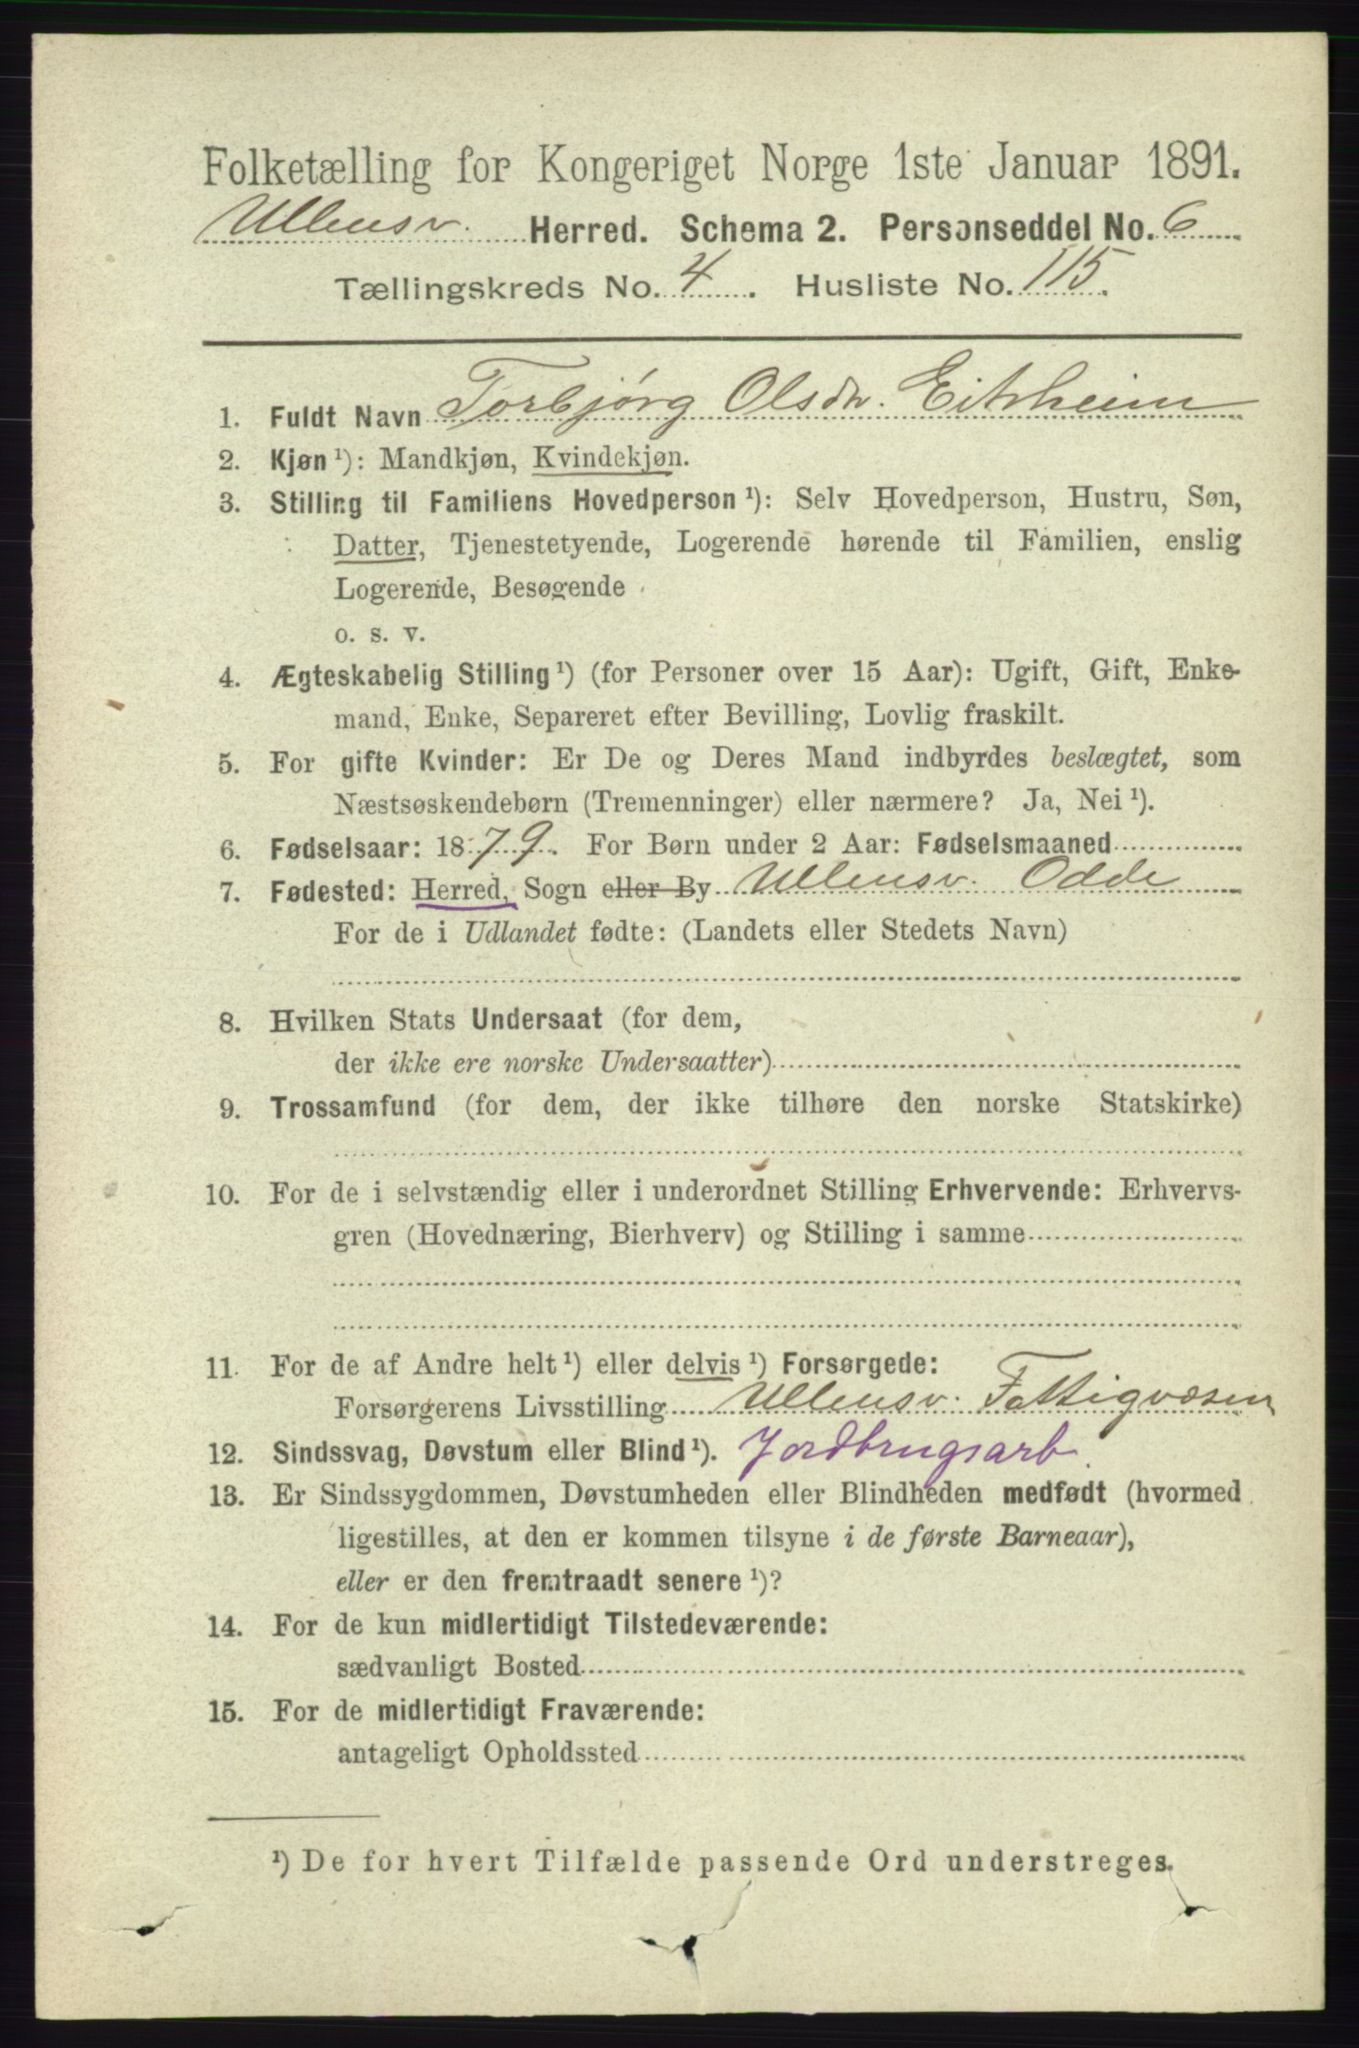 Folketælling for Kongeriget Norge 1ste Januar 1891.
Ullensv. Herred. Schema 2. Personseddel No. 6
Tællingskreds No. 4. Husliste No. 115.
1. Fuldt Navn Torbjørg Olsdtr. Eitrheim
2. Kjøn ¹): Mandkjøn, Kvindekjøn.
3. Stilling til Familiens Hovedperson ¹): Selv Hovedperson, Hustru, Søn,
Datter, Tjenestetyende, Logerende hørende til Familien, enslig
Logerende, Besøgende
o. s. v.
4. Ægteskabelig Stilling ¹) (for Personer over 15 Aar): Ugift, Gift, Enke-
mand, Enke, Separeret efter Bevilling, Lovlig fraskilt.
5. For gifte Kvinder: Er De og Deres Mand indbyrdes beslægtet, som
Næstsøskendebørn (Tremenninger) eller nærmere? Ja, Nei ¹).
6. Fødselsaar: 1879. For Børn under 2 Aar: Fødselsmaaned
7. Fødested: Herred, Sogn eller By Ullensv. Odde
For de i Udlandet fødte: (Landets eller Stedets Navn)
8. Hvilken Stats Undersaat (for dem,
der ikke ere norske Undersaatter)
9. Trossamfund (for dem, der ikke tilhøre den norske Statskirke)
10. For de i selvstændig eller i underordnet Stilling Erhvervende: Erhvervs-
gren (Hovednæring, Bierhverv) og Stilling i samme
11. For de af Andre helt ¹) eller delvis ¹) Forsørgede:
Forsørgerens Livsstilling Ullensv. Fattigvæsen
12. Sindssvag, Døvstum eller Blind ¹). Jordbrugsarb.
13. Er Sindssygdommen, Døvstumheden eller Blindheden medfødt (hvormed
ligestilles, at den er kommen tilsyne i de første Barneaar),
eller er den fremtraadt senere ¹)?
14. For de kun midlertidigt Tilstedeværende:
sædvanligt Bosted
15. For de midlertidigt Fraværende:
antageligt Opholdssted
¹) De for hvert Tilfælde passende Ord understreges.